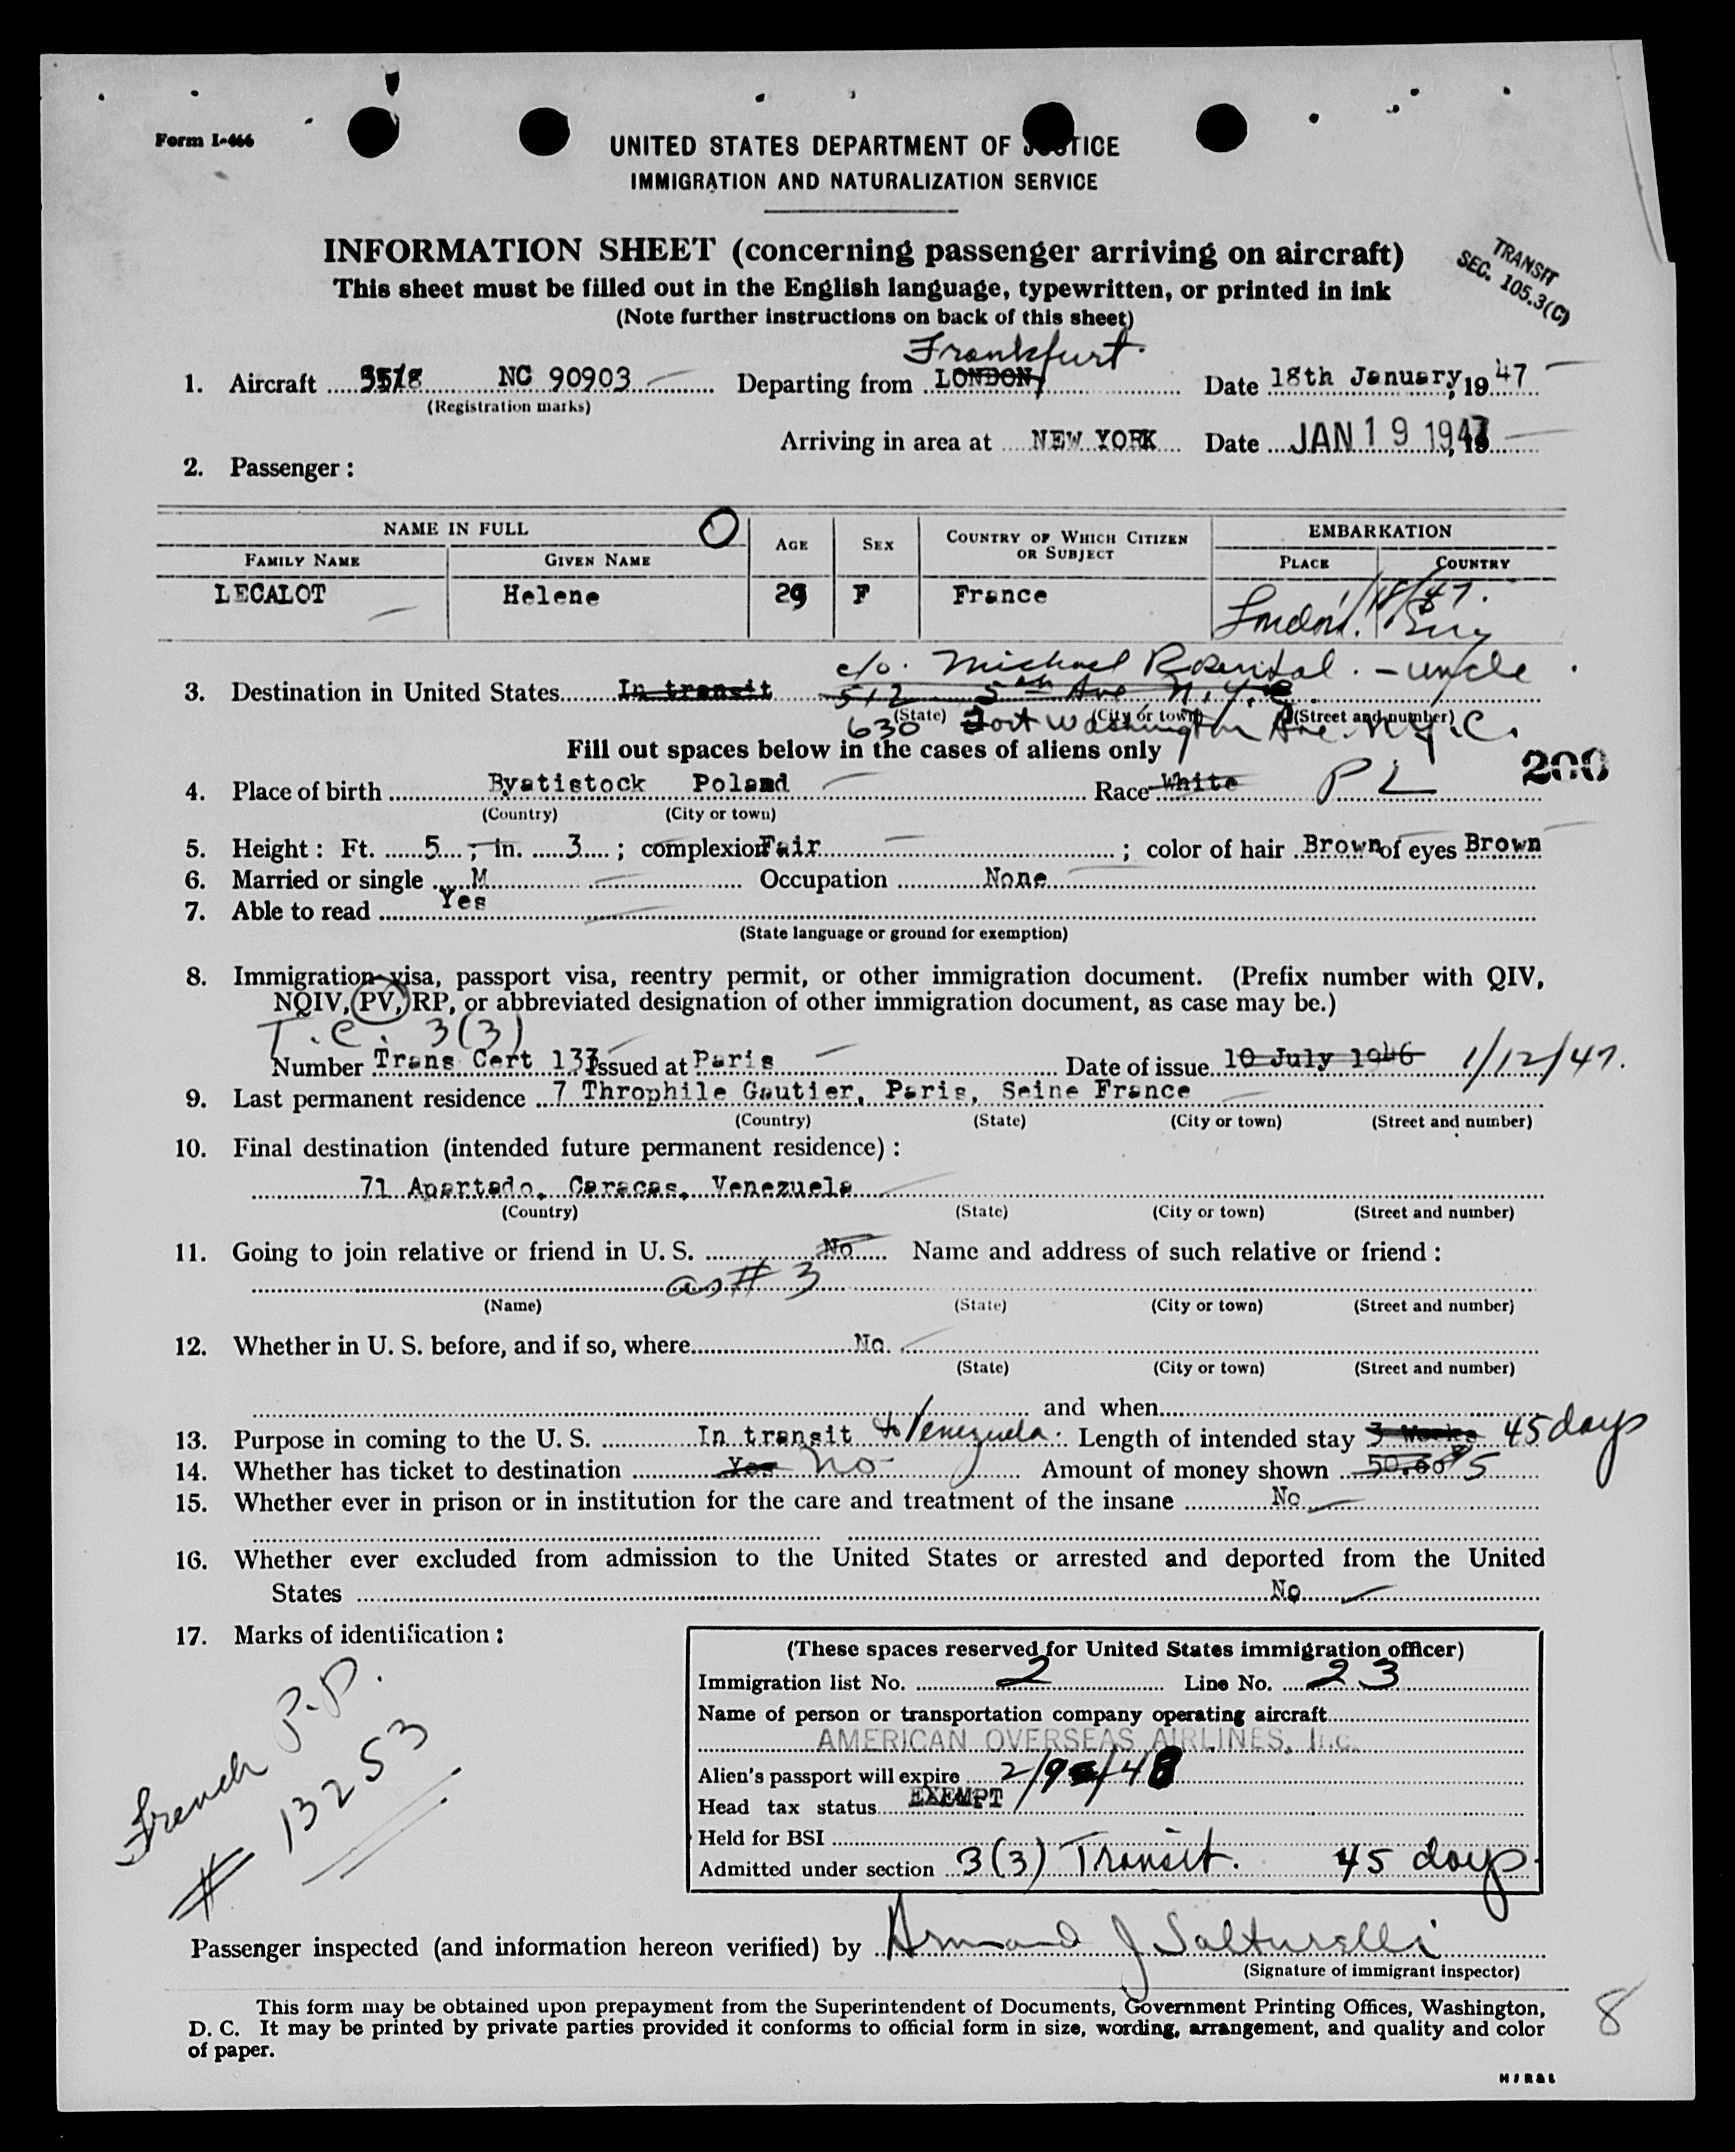 Form I-466
UNITED STATES DEPARTMENT OF JUSTICE
IMMIGRATION AND NATURALIZATION SERVICE
INFORMATION SHEET (concerning passenger arriving on aircraft)
This sheet must be filled out in the English language, typewritten, or printed in ink
(Note further instructions on back of this sheet)
TRANSIT
SEC. 105.3(C)
Frankfurt
1. Aircraft NC 90903 Departing from LONDON Date 18th January, 1947
(Registration marks)
Arriving in area at NEW YORK Date JAN 19 1947
2. Passenger:
NAME IN FULL AGE SEX COUNTRY OF WHICH CITIZEN OR SUBJECT EMBARKATION
FAMILY NAME GIVEN NAME PLACE COUNTRY
LECALOT Helene 29 F France London. 1/18/47.
c/o. Michael Rosental. - uncle
3. Destination in United States In transit 512 5th Ave N.Y.C
(State) (City or town) (Street and number)
630 Fort Washington Ave. N.Y.C.
Fill out spaces below in the cases of aliens only
200
4. Place of birth Byatistock Poland Race White PL
(Country) (City or town)
5. Height: Ft. 5; in. 3; complexion Fair; color of hair Brown of eyes Brown
6. Married or single M Occupation None
7. Able to read Yes
(State language or ground for exemption)
8. Immigration visa, passport visa, reentry permit, or other immigration document. (Prefix number with QIV,
NQIV, PV, RP, or abbreviated designation of other immigration document, as case may be.)
T.C. 3(3)
Number Trans Cert 133 Issued at Paris Date of issue 10 July 1946 1/12/47.
9. Last permanent residence 7 Throphile Gautier, Paris, Seine France
(Country) (State) (City or town) (Street and number)
10. Final destination (intended future permanent residence):
71 Apartado, Caracas, Venezuela
(Country) (State) (City or town) (Street and number)
11. Going to join relative or friend in U. S. No Name and address of such relative or friend:
as # 3
(Name) (State) (City or town) (Street and number)
12. Whether in U. S. before, and if so, where No.
(State) (City or town) (Street and number)
and when
13. Purpose in coming to the U. S. In transit to Venezuela. Length of intended stay 3 Weeks 45 days
14. Whether has ticket to destination Yes No Amount of money shown 50.00 $5
15. Whether ever in prison or in institution for the care and treatment of the insane No
16. Whether ever excluded from admission to the United States or arrested and deported from the United
States No
17. Marks of identification:
French P.P.
# 13253
(These spaces reserved for United States immigration officer)
Immigration list No. 2 Line No. 23
Name of person or transportation company operating aircraft
AMERICAN OVERSEAS AIRLINES, Inc.
Alien's passport will expire 2/9/48
Head tax status EXEMPT
Held for BSI
Admitted under section 3(3) Transit. 45 days.
Passenger inspected (and information hereon verified) by Armand J Salturelli
(Signature of immigrant inspector)
This form may be obtained upon prepayment from the Superintendent of Documents, Government Printing Offices, Washington,
D. C. It may be printed by private parties provided it conforms to official form in size, wording, arrangement, and quality and color
of paper.
8